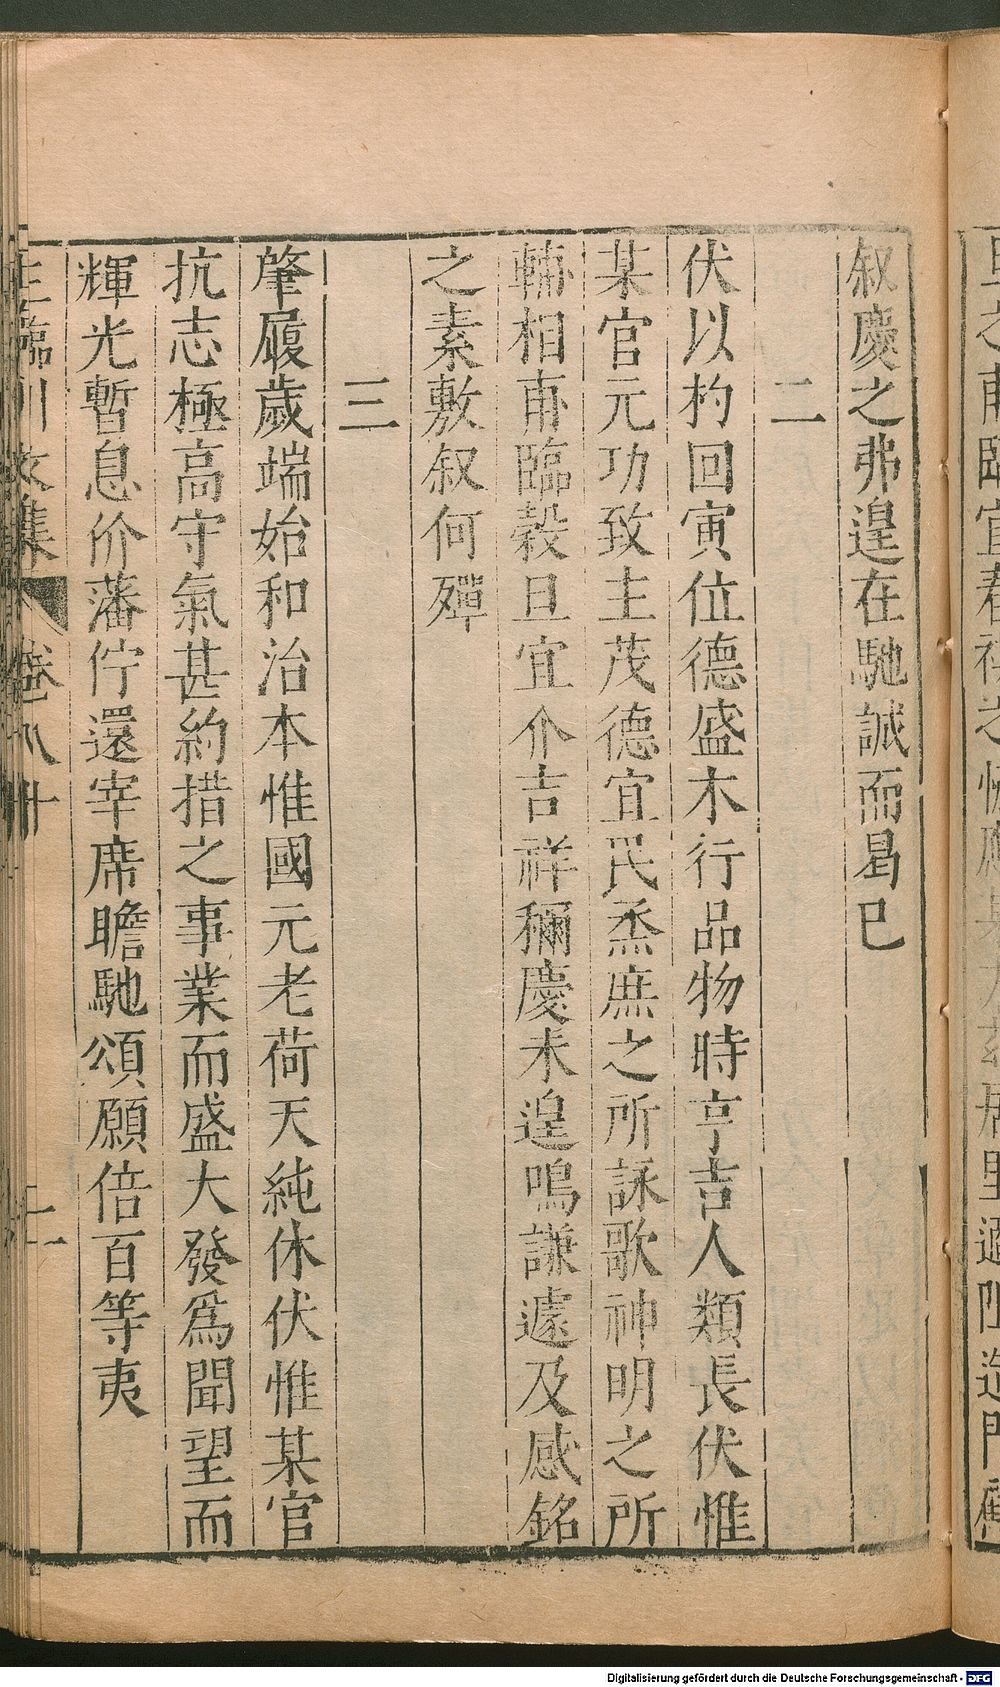 叙慶之弗遑在馳誠而曷已
二
伏以杓回寅位德盛木行品物時亨吉人類長伏惟
某官元功致主茂德宜民烝庶之所詠歌神明之所
輔相甫臨穀旦宜介吉祥稱慶未遑鳴謙遽及感銘
之素敷叙何殫
三
肇履歲端始和治本惟國元老荷天純休伏惟某官
抗志極高守氣甚約措之事業而盛大發爲聞望而
輝光暫息价藩佇還宰席瞻馳頌願倍百等夷
王臨川文集 卷八十
Digitalisierung gefördert durch die Deutsche Forschungsgemeinschaft - DFG